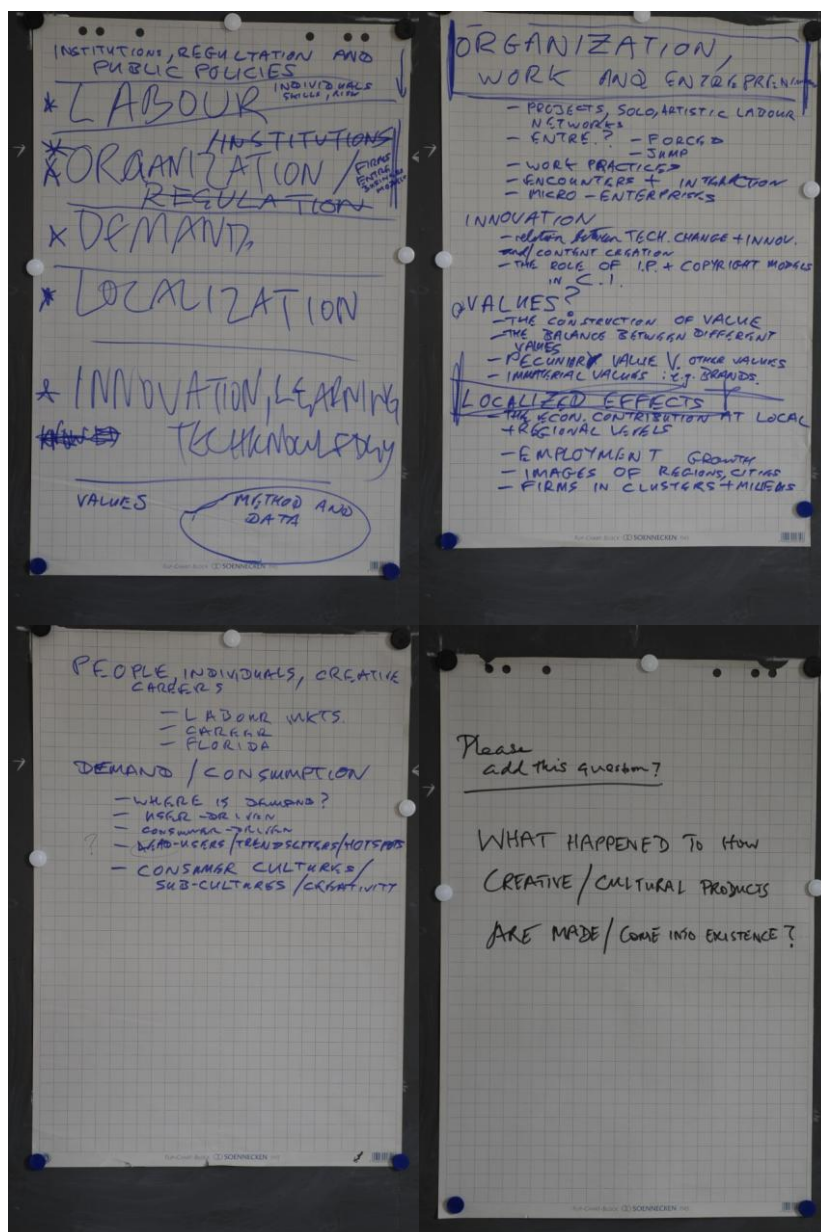 INSTITUTIONS, REGULTATION AND
PUBLIC POLICIES
* LABOUR INDIVIDUALS
SKILLS, RISK
/INSTITUTIONS
* ORGANIZATION / FIRMS
ENTRE
BUSINESS
MODELS
REGULATION
* DEMAND,
* LOCALIZATION
* INNOVATION, LEARNING
TECHKNOWLEDGY
VALUES
METHOD AND
DATA
TOP-CHART-BLOCK SOENNECKEN
ORGANIZATION,
WORK AND ENTREPRENEUR
- PROJECTS, SOLO, ARTISTIC LABOUR
NETWORKS
- ENTRE.? - FORCED
- JUMP
- WORK PRACTICES
- ENCOUNTERS + INTERACTION
- MICRO-ENTERPRISES
INNOVATION
- relation between TECH. CHANGE + INNOV.
and/CONTENT CREATION
- THE ROLE OF I.P. + COPYRIGHT MODELS
IN C.I.
VALUES?
- THE CONSTRUCTION OF VALUE
- THE BALANCE BETWEEN DIFFERENT
VALUES
- PECUNIARY VALUE V. OTHER VALUES
- IMMATERIAL VALUES: e.g. BRANDS.
LOCALIZED EFFECTS
- THE ECON. CONTRIBUTION AT LOCAL
+ REGIONAL LEVELS
- EMPLOYMENT GROWTH
- IMAGES OF REGIONS, CITIES
- FIRMS IN CLUSTERS + MILIEUS
TOP-CHART-BLOCK SOENNECKEN
PEOPLE, INDIVIDUALS, CREATIVE
CAREERS
- LABOUR MKTS.
- CAREER
- FLORIDA
DEMAND / CONSUMPTION
- WHERE IS DEMAND?
- USER-DRIVEN
- CONSUMER-DRIVEN
? - LEAD-USERS/TRENDSETTERS/HOTSPOTS
- CONSUMER CULTURES/
SUB-CULTURES/CREATIVITY
TOP-CHART-BLOCK SOENNECKEN
Please
add this question?
WHAT HAPPENED TO HOW
CREATIVE/CULTURAL PRODUCTS
ARE MADE/COME INTO EXISTENCE?
TOP-CHART-BLOCK SOENNECKEN